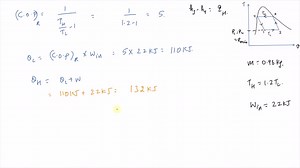 (C.O.P)R = 1 / (TH/TL - 1) = 1 / (1.2-1) = 5.
QL = (C.O.P)R × Win = 5 × 22 KJ = 110 KJ
QH = QL + W
= 110 KJ + 22 KJ = 132 KJ
m = 0.96 kg.
TH = 1.2 TL
Win = 22 KJ